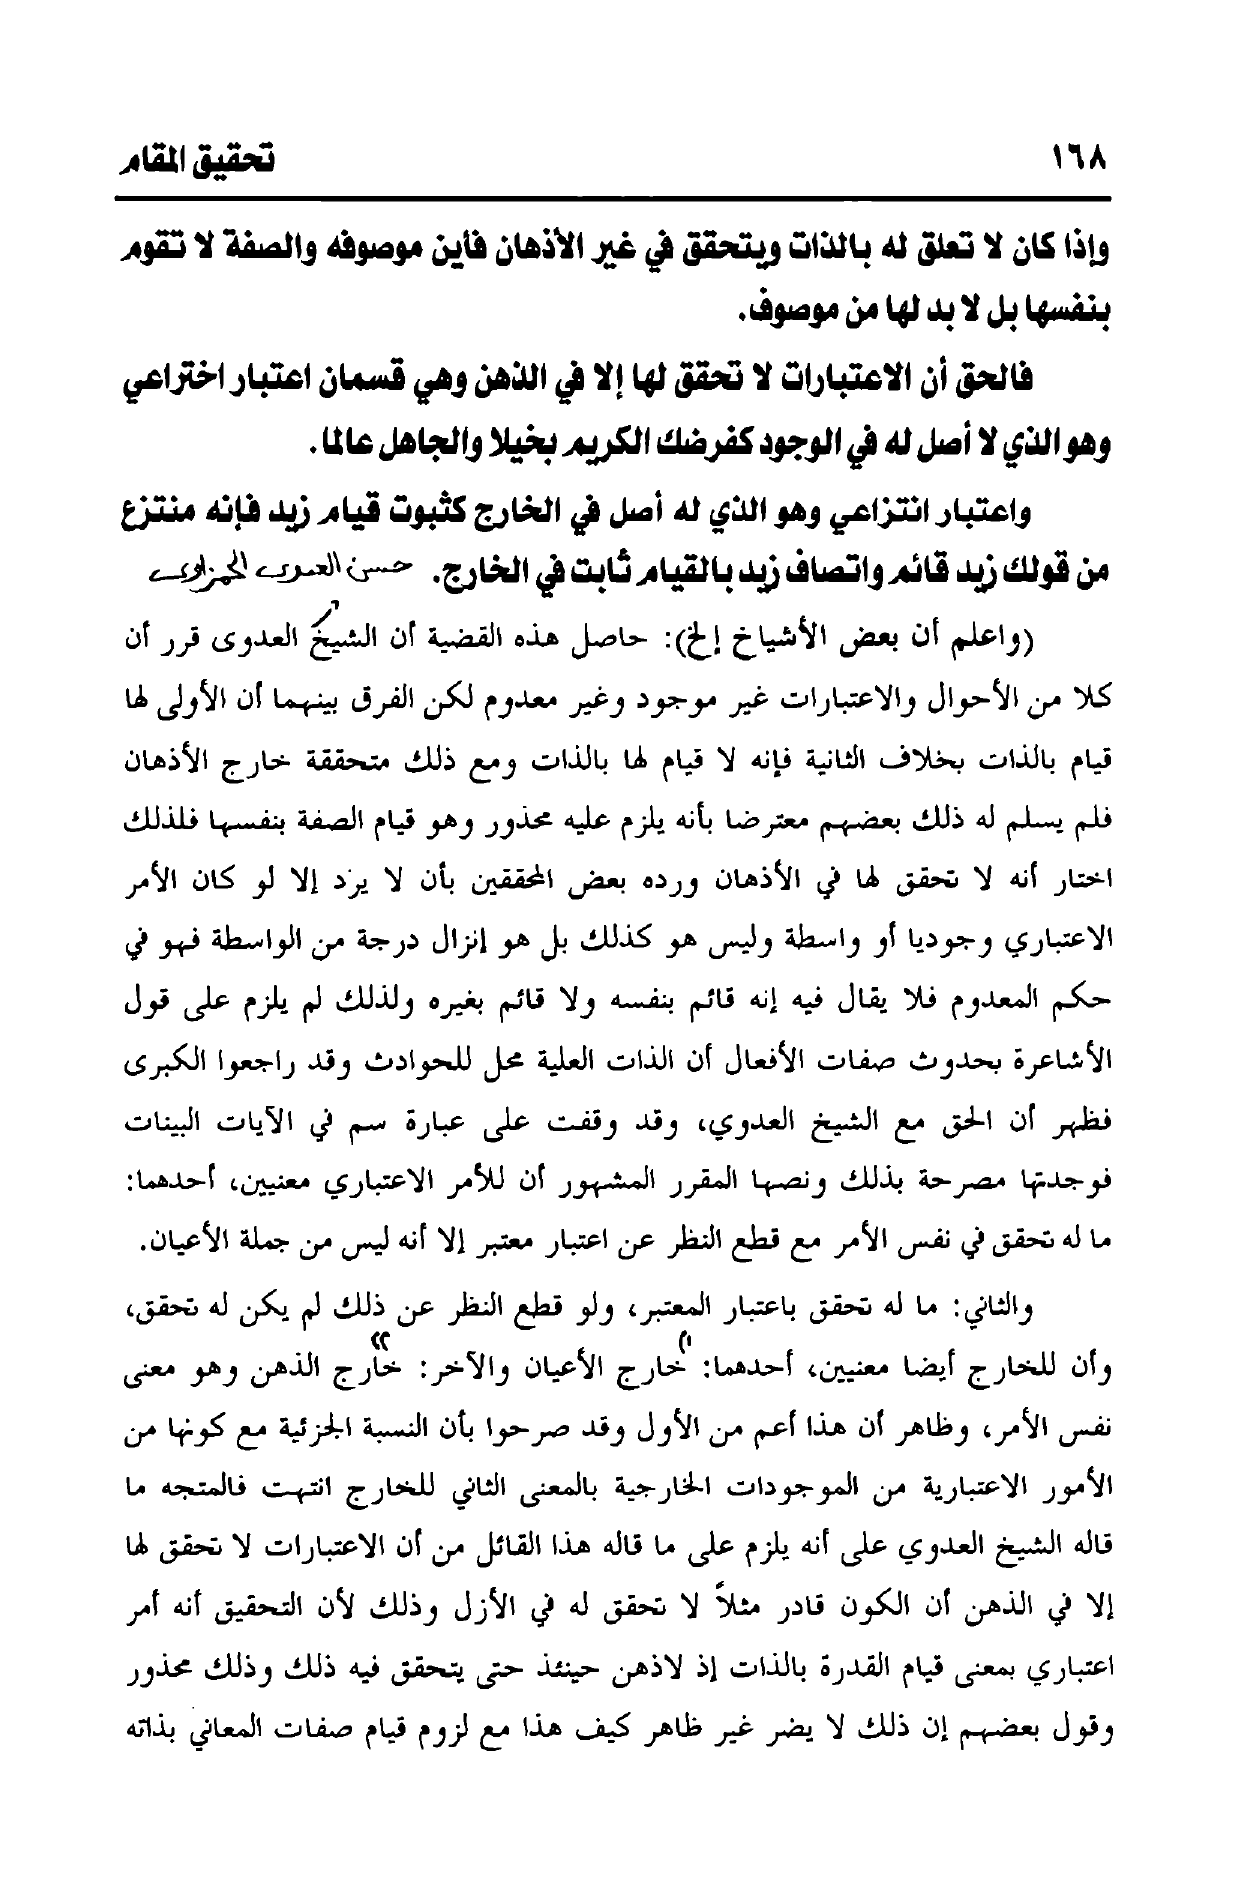 ١٦٨ تحقيق المقام
وإذا كان لا تعلق له بالذات ويتحقق في غير الأذهان فأين موصوفه والصفة لا تقوم
بنفسها بل لا بد لها من موصوف.
فالحق أن الاعتبارات لا تحقق لها إلا في الذهن وهي قسمان اعتبار اختراعي
وهو الذي لا أصل له في الوجود كفرضك الكريم بخيلا والجاهل عالما.
واعتبار انتزاعي وهو الذي له أصل في الخارج كثبوت قيام زيد فإنه منتزع
من قولك زيد قائم واتصاف زيد بالقيام ثابت في الخارج. حسن العدوى الحمزاوى
(واعلم أن بعض الأشياخ إلخ): حاصل هذه القضية أن الشيخ العدوى قرر أن
كلا من الأحوال والاعتبارات غير موجود وغير معدوم لكن الفرق بينهما أن الأولى لها
قيام بالذات بخلاف الثانية فإنه لا قيام لها بالذات ومع ذلك متحققة خارج الأذهان
فلم يسلم له ذلك بعضهم معترضا بأنه يلزم عليه محذور وهو قيام الصفة بنفسها فلذلك
اختار أنه لا تحقق لها في الأذهان ورده بعض المحققين بأن لا يرد إلا لو كان الأمر
الاعتباري وجوديا أو واسطة وليس هو كذلك بل هو إنزال درجة من الواسطة فهو في
حكم المعدوم فلا يقال فيه إنه قائم بنفسه ولا قائم بغيره ولذلك لم يلزم على قول
الأشاعرة بحدوث صفات الأفعال أن الذات العلية محل للحوادث وقد راجعوا الكبرى
فظهر أن الحق مع الشيخ العدوي، وقد وقفت على عبارة سم في الآيات البينات
فوجدتها مصرحة بذلك ونصها المقرر المشهور أن للأمر الاعتباري معنيين، أحدهما:
ما له تحقق في نفس الأمر مع قطع النظر عن اعتبار معتبر إلا أنه ليس من جملة الأعيان.
والثاني: ما له تحقق باعتبار المعتبر، ولو قطع النظر عن ذلك لم يكن له تحقق،
وأن للخارج أيضا معنيين، أحدهما: خارج الأعيان والآخر: خارج الذهن وهو معنى
نفس الأمر، وظاهر أن هذا أعم من الأول وقد صرحوا بأن النسبة الجزئية مع كونها من
الأمور الاعتبارية من الموجودات الخارجية بالمعنى الثاني للخارج انتهت فالمتجه ما
قاله الشيخ العدوي على أنه يلزم على ما قاله هذا القائل من أن الاعتبارات لا تحقق لها
إلا في الذهن أن الكون قادر مثلاً لا تحقق له في الأزل وذلك لأن التحقيق أنه أمر
اعتباري بمعنى قيام القدرة بالذات إذ لاذهن حينئذ حتى يتحقق فيه ذلك وذلك محذور
وقول بعضهم إن ذلك لا يضر غير ظاهر كيف هذا مع لزوم قيام صفات المعاني بذاته